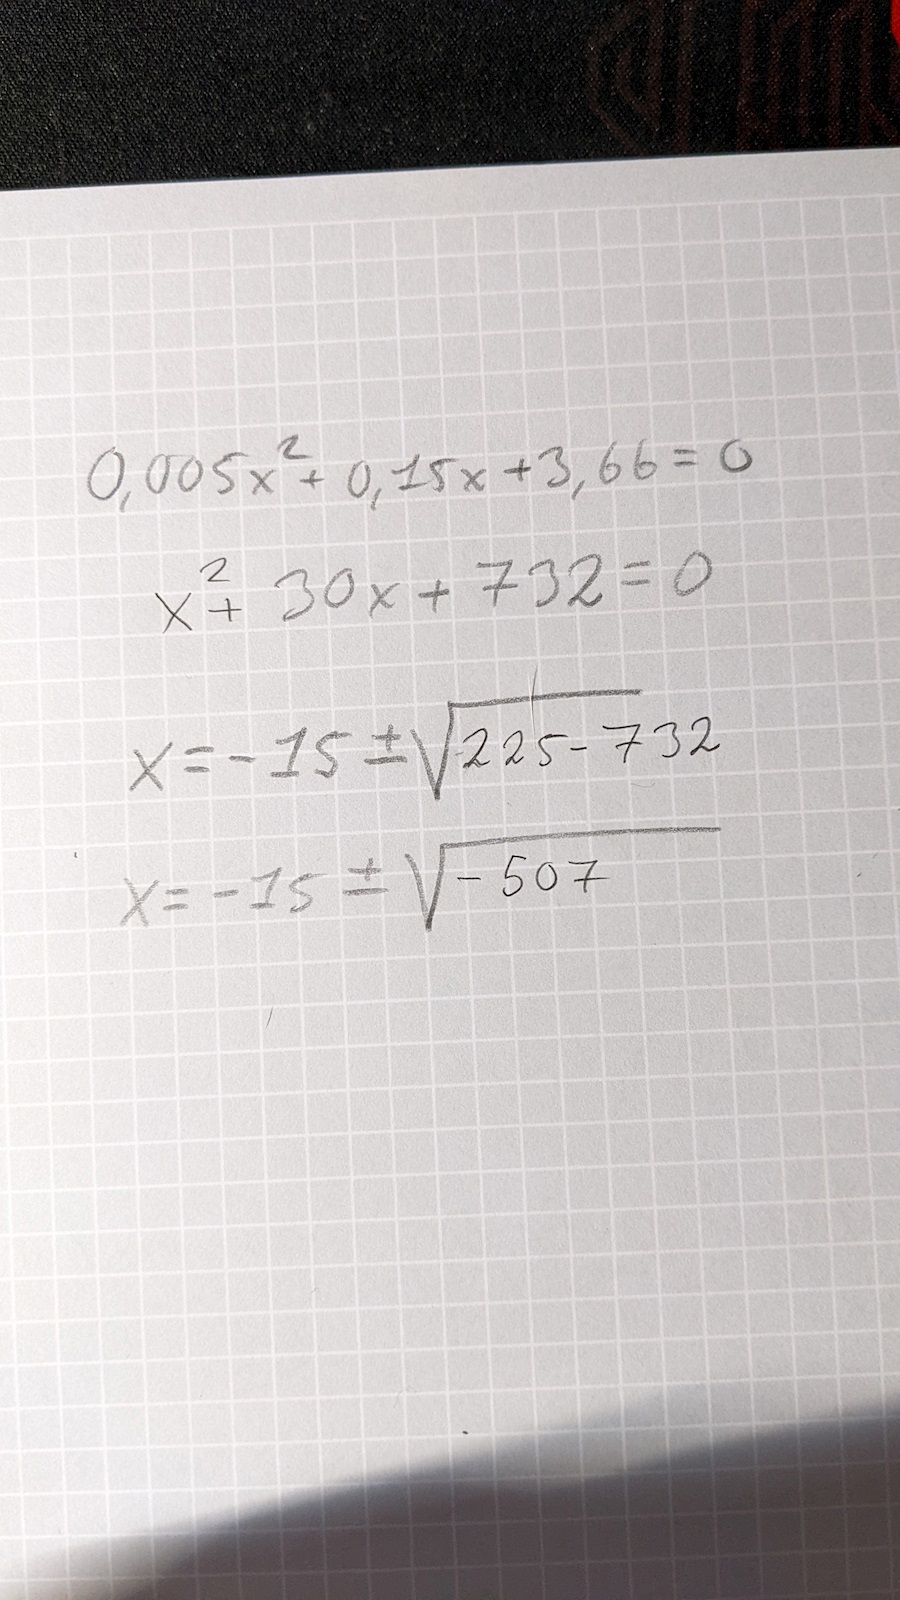 0,005x² + 0,15x + 3,66 = 0
x² + 30x + 732 = 0
x = -15 ± √225 - 732
x = -15 ± √-507